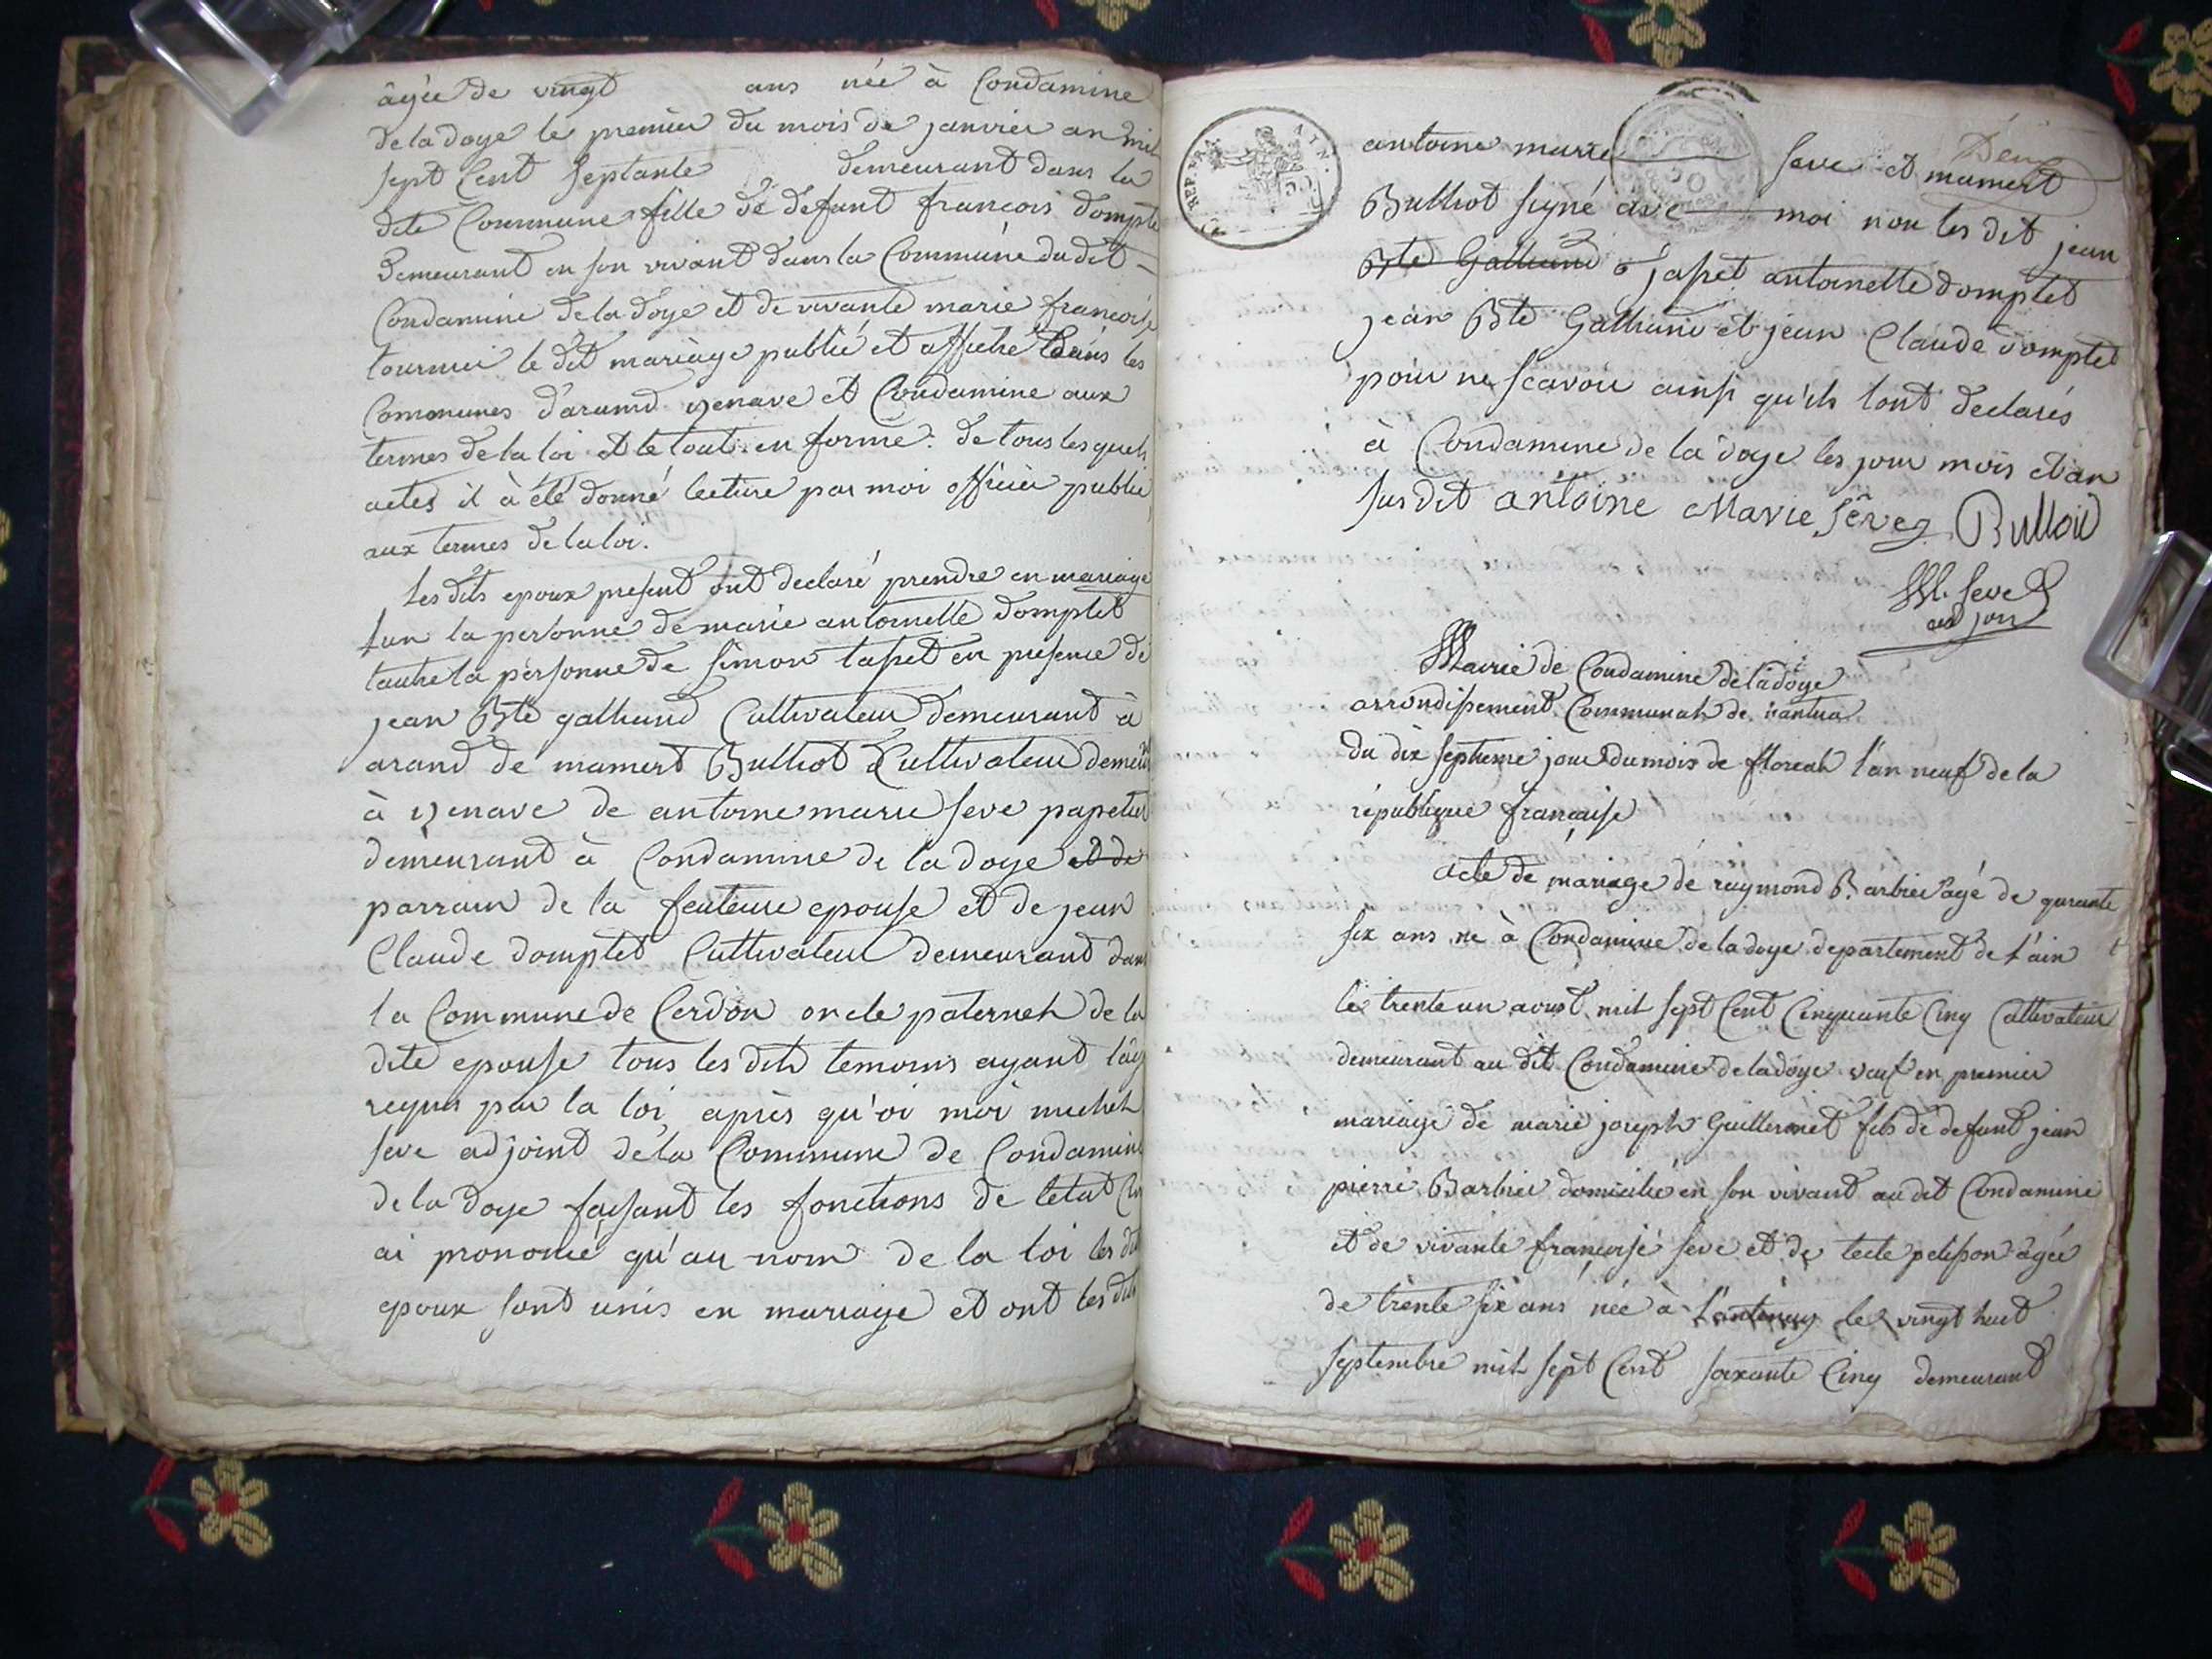 âgée de vingt ans née à Condamine
de la doye le premier du mois de janvier an mil
sept Cent septante demeurant dans la
dite Commune fille de defunt francois dompte
demeurant en son vivant dans la Commune du dit
Condamine de la doye et de vivante marie francoise
tournier le dit mariage publié et affiché dans les
Communes d'arand izenave et Condamine aux
termes de la loi et le tout en forme. de tous les quels
actes il à été donné lecture par moi officier public
aux termes de la loi.
les dits epoux present ont declaré prendre en mariage
l'un la personne de marie antoinette domptet
l'autre la personne de simon tapet en presence de
jean Bte galliand Cultivateur demeurant à
arand de mamert Bulliot Cultivateur demeurt
à izenave de antoine marie seve papetier
demeurant à Condamine de la doye et de
parrain de la feuteure epouse et de jean
Claude domptet Cultivateur demeurant dans
la Commune de Cerdon oncle paternel de la
dite epouse tous les dits temoins ayant l'age
requis par la loi après qu'oi moi michel
seve adjoint de la Commune de Condamine
de la doye faisant les fonctions de l'etat
ai prononcé qu'au nom de la loi les dits
epoux sont unis en mariage et ont les dits
REP. AIN.
antoine marie seve et mamert
Bulliot signé avec moi non les dit jean
Bte Galliand tapet antoinette domptet
jean Bte Galliand et jean Claude domptet
pour ne scavoir ainsi qu'ils l'ont declarés
à Condamine de la doye les jour mois et an
sus dit antoine Marie Seve Bulliod
M. Seve
adjoint
Mairie de Condamine de la doye
arrondissement Communal de nantua
du dix septieme jour du mois de floreal l'an neuf de la
république française
acte de mariage de raymond Barbier agé de quarante
six ans né à Condamine de la doye departement de l'ain
le trente un aoust mil sept Cent Cinquante Cinq Cultivateur
demeurant au dit Condamine de la doye veuf en premier
mariage de marie joseph Guillermet fils de defunt jean
pierre Barbier domicilié en son vivant au dit Condamine
et de vivante françoise seve et de tecle pelisson âgée
de trente six ans née à Lantenay le vingt huit
septembre mil sept Cent soixante Cinq demeurant